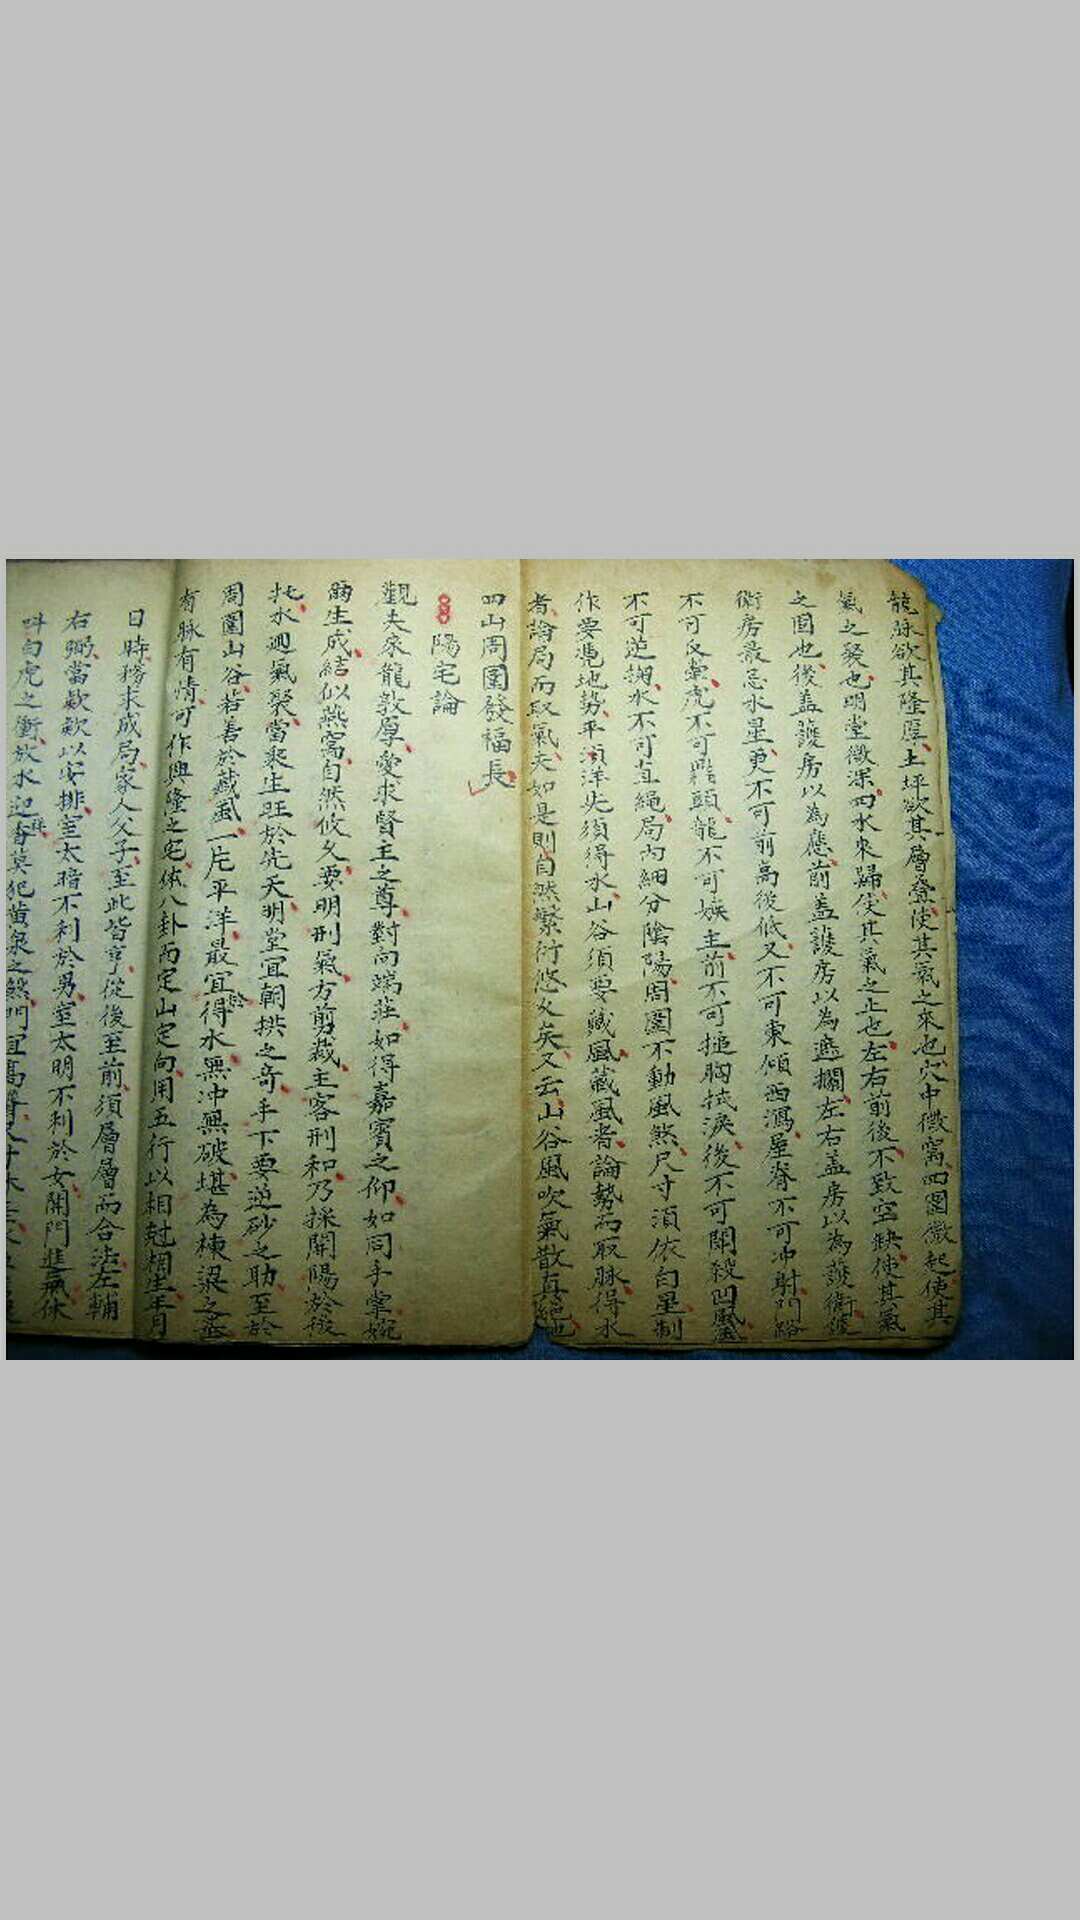 龍脉欲其隆厚土坪欲其層疊使其氣之來也穴中微窩四圍微起使其
氣之聚也明堂微深四水來歸使其氣之止也左右前後不致空缺使其氣
之固也後盖護房以為應前盖護房以為遮攔左右盖房以為護衛護
衛房最忌水星更不可前高後低又不可東傾西瀉屋脊不可冲射門路
不可反虎不可頭龍不可嫉主前不可搥胸拭淚後不可開殺凹風
不可逆拥水不可直繩局內細分陰陽周圍不動風煞尺寸須依白星制
作要憑地勢平須洋先須得水山谷須要藏風藏風者論勢而取脉得水
者論局而取氣夫如是則自然繁衍悠久矣又云山谷風吹氣散真絕地
四山周圍發福長
陽宅論
觀夫來龍敦厚愛求賢主之尊對向端莊如得嘉賓之仰如同手掌婉
生成結似燕窩自然攸久要明刑氣方剪裁主客刑和乃採開陽於後
托水迎氣聚當聚生旺於先天明堂宜朝拱之奇手下要逆砂之助至於
周圍山谷若善於藏風一片平洋最宜於得水無冲無破堪為棟梁之基
有脉有情可作興隆之宅依八卦而定山定向用五行以相尅相生年月
日時務求成局家人父子至此皆亨從後至前須層層而合法左輔
右弼當款款以安排室太暗不利於男室太明不利於女開門進氣休
白虎之衝放水迎莫犯黃泉之煞門宜高